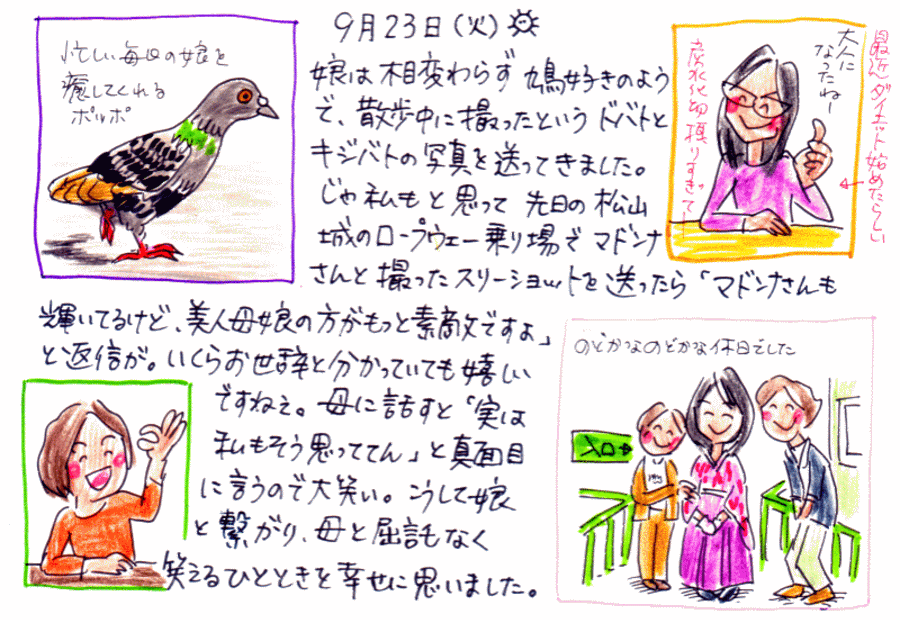 9月23日(火)
忙しい毎日の娘を
癒してくれる
ポッポ
娘は相変わらず鳩好きのよう
で、散歩中に撮ったというドバトと
キジバトの写真を送ってきました。
じゃ私もと思って先日の松山
城のロープウェー乗り場でマドンナ
さんと撮ったスリーショットを送ったら「マドンナさんも
輝いてるけど、美人母娘の方がもっと素敵ですよ」
と返信が。いくらお世辞と分かっていても嬉しい
ですねぇ。母に話すと「実は
私もそう思っててん」と真面目
に言うので大笑い。こうして娘
と繋がり、母と屈託もなく
笑えるひとときを幸せに思いました。
大人に
なったねー
炭水化物摂りすぎってー
最近ダイエット始めたらしい
のどかなのどかな休日でした
入口→